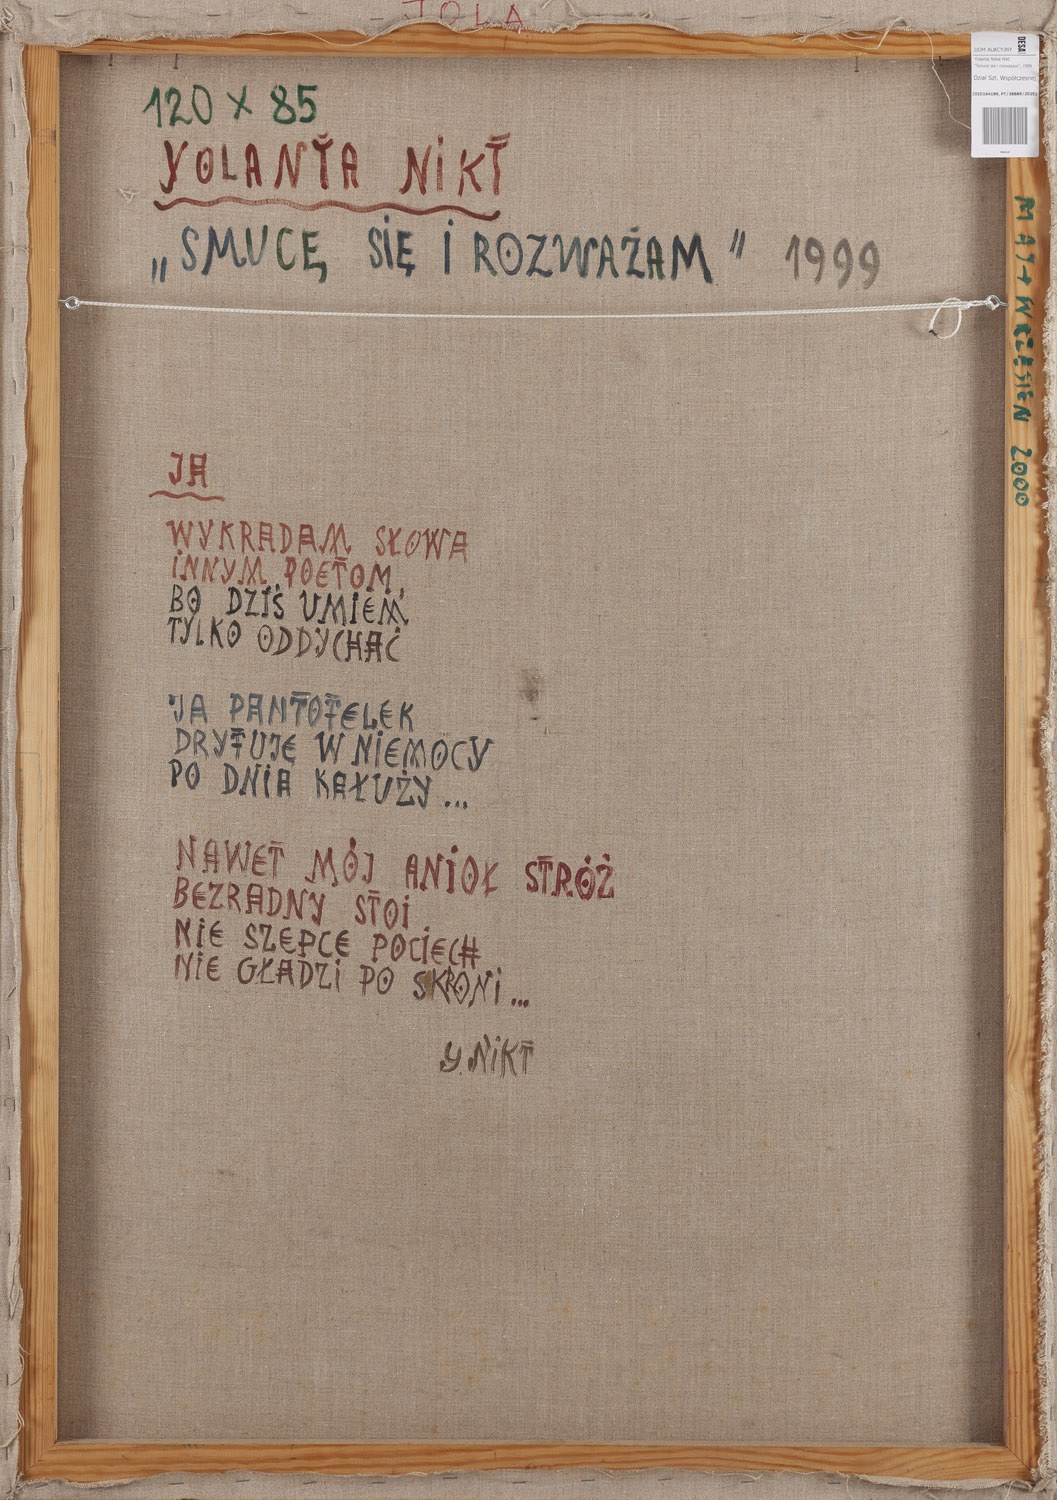 JOLA
DOM AUKCYJNY
DESA
Dział Szt. Współczesnej
120 x 85
YOLANTA NIKT
„SMUCĘ SIĘ I ROZWAŻAM" 1999
MAJ → WRZESIEŃ 2000
JA
WYKRADAM SŁOWA
INNYM POETOM,
BO DZIŚ UMIEM
TYLKO ODDYCHAĆ
JA PANTOFELEK
DRYFUJĘ W NIEMOCY
PO DNIA KAŁUŻY...
NAWET MÓJ ANIOŁ STRÓŻ
BEZRADNY STOI
NIE SZEPCE POCIECH
NIE GŁADZI PO SKRONI...
Y. NIKT